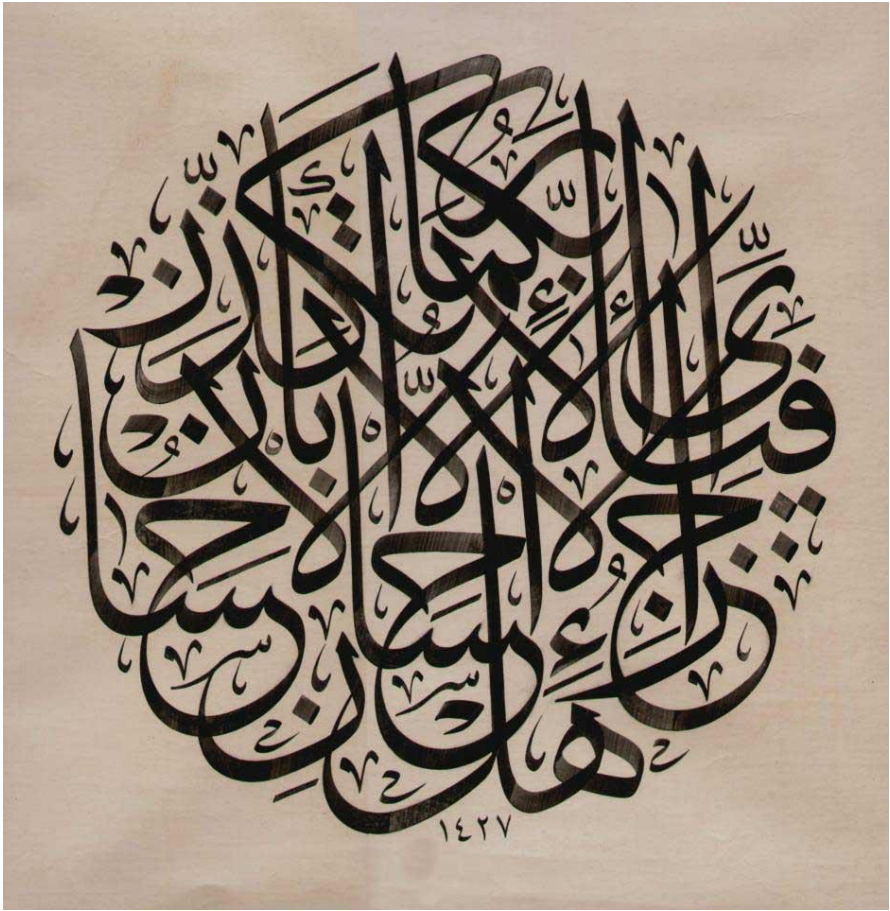 هل جزاء الإحسان إلا الإحسان
فبأي آلاء ربكما تكذبان
١٤٢٧